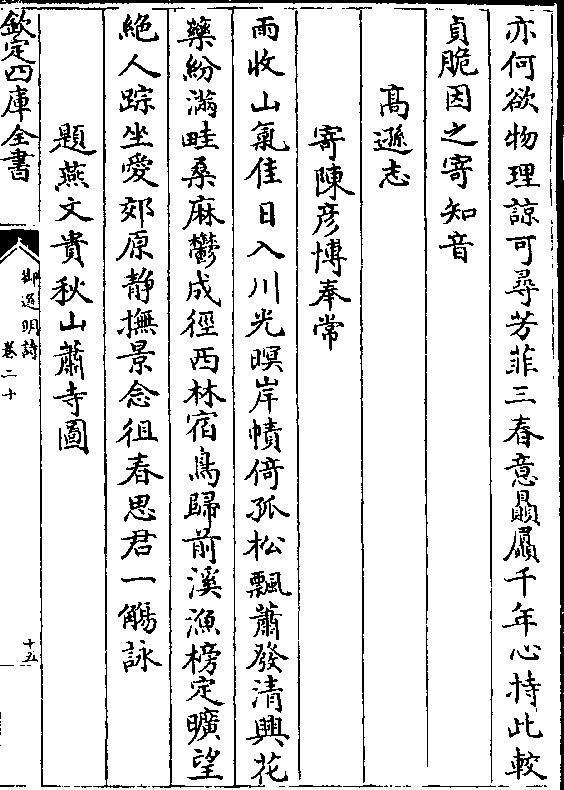 亦何欲物理諒可尋芳菲三春意贔屭千年心持此較
貞脆因之寄知音
高遜志
寄陳彦博奉常
雨收山氣佳日入川光暝岸幘倚孤松飄蕭發清興花
藥紛滿畦桑麻鬱成徑西林宿鳥歸前溪漁榜定曠望
絶人踪坐愛郊原靜撫景念徂春思君一觴詠
題燕文貴秋山蕭寺圖
欽定四庫全書
御選明詩
卷二十
十五